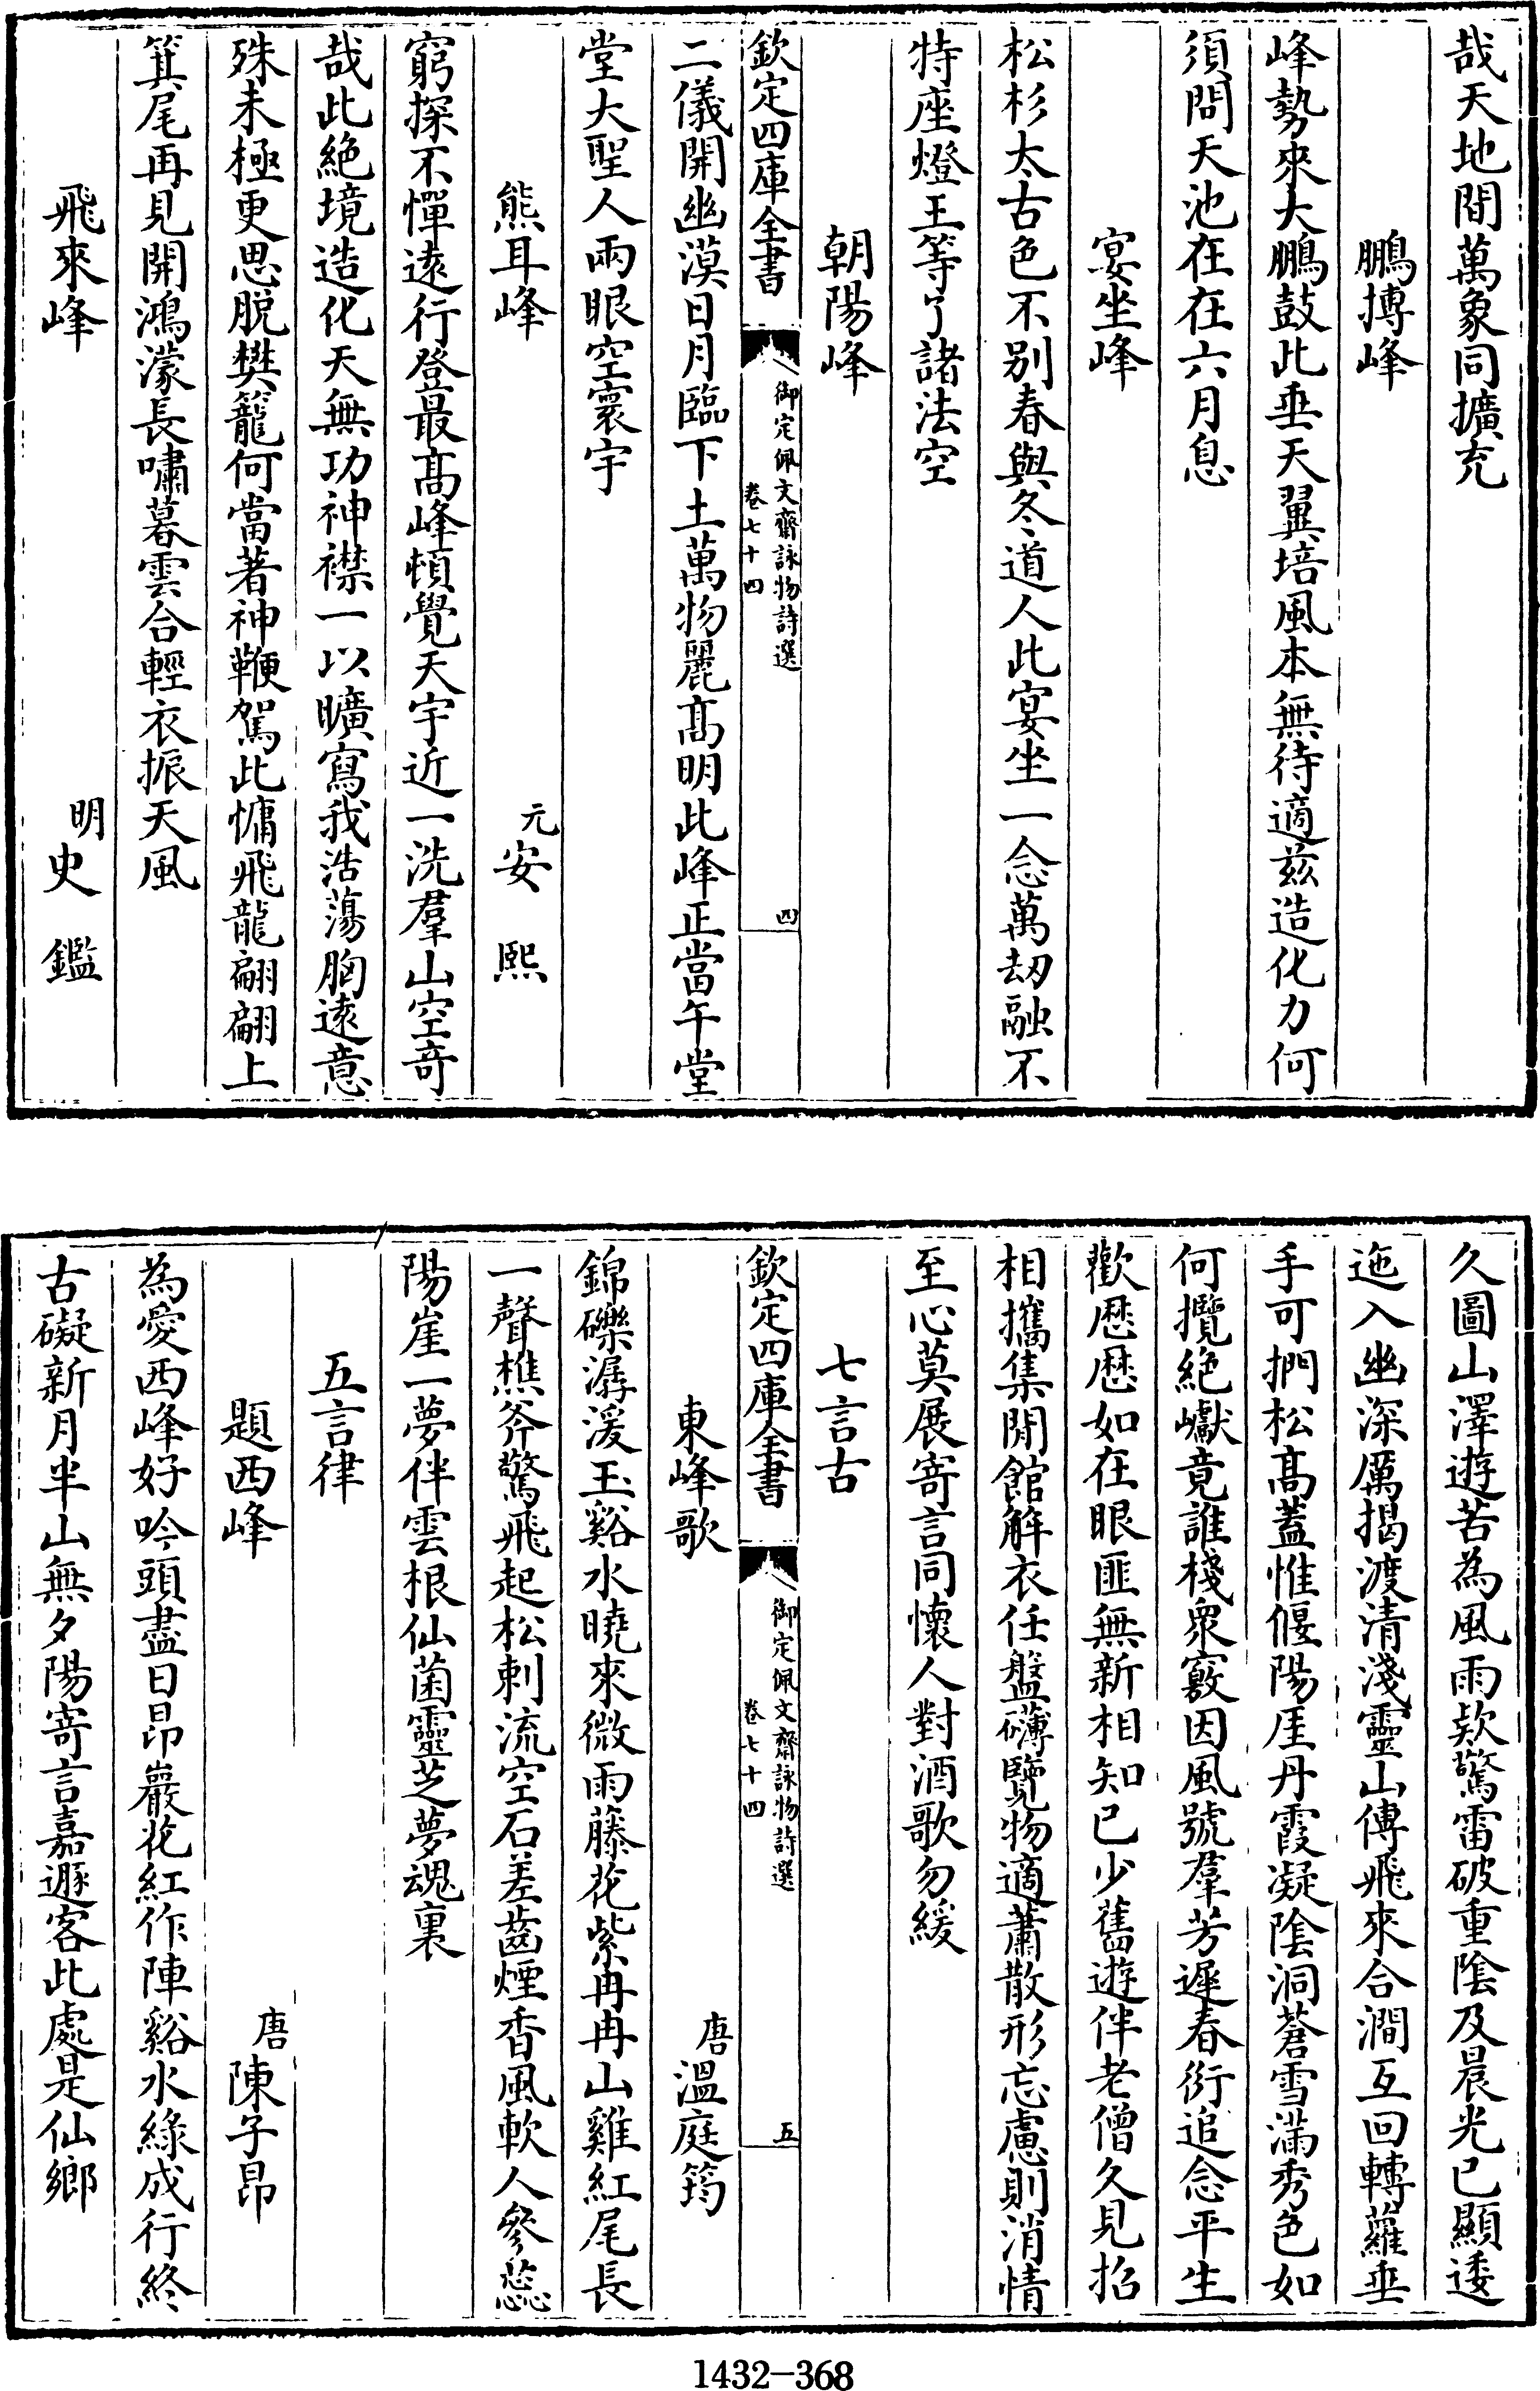 哉天地間萬象同擴充
鵬摶峰
峰勢來大鵬鼓此垂天翼培風本無待適兹造化力何
須問天池在在六月息
宴坐峰
松杉太古色不别春與冬道人此宴坐一念萬劫融不
特座燈王等了諸法空
朝陽峰
欽定四庫全書
御定佩文齋詠物詩選
卷七十四
四
二儀開幽漠日月臨下土萬物麗髙明此峰正當午堂
堂大聖人兩眼空寰宇
熊耳峰
元安熙
窮探不憚遠行登最髙峰頓覺天宇近一洗羣山空竒
哉此絶境造化天無功神襟一以曠寫我浩蕩胸遠意
殊未極更思脱樊籠何當著神鞭駕此慵飛龍翩翩上
箕尾再見開鴻濛長嘯暮雲合輕衣振天風
飛來峰
明史鑑
久圖山澤遊苦為風雨欵驚雷破重隂及晨光已顯逶
迤入幽深厲揭渡清淺靈山傳飛來合澗互回轉蘿垂
手可捫松髙蓋惟偃陽厓丹霞凝隂洞蒼雪滿秀色如
何攬絶巘竟誰棧衆竅因風號羣芳遲春衍追念平生
歡歴歴如在眼匪無新相知已少舊遊伴老僧久見招
相攜集閒館解衣任盤礴覽物適蕭散形忘慮則消情
至心莫展寄言同懷人對酒歌勿緩
七言古
欽定四庫全書
御定佩文齋詠物詩選
卷七十四
五
東峰歌
唐溫庭筠
錦礫潺湲玉谿水曉來微雨藤花紫冉冉山雞紅尾長
一聲樵斧驚飛起松刺流空石差齒煙香風軟人參蕊
陽崖一夢伴雲根仙菌靈芝夢魂裏
五言律
題西峰
唐陳子昂
為愛西峰好吟頭盡日昂巖花紅作陣谿水緑成行終
古礙新月半山無夕陽寄言嘉遯客此處是仙鄉
1432-368